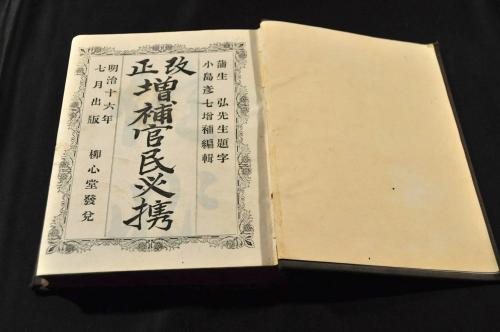 蒲生 弘先生題字
小島彦七增補編輯
改正
增補官民必携
明治十六年
七月出版 柳心堂發兌